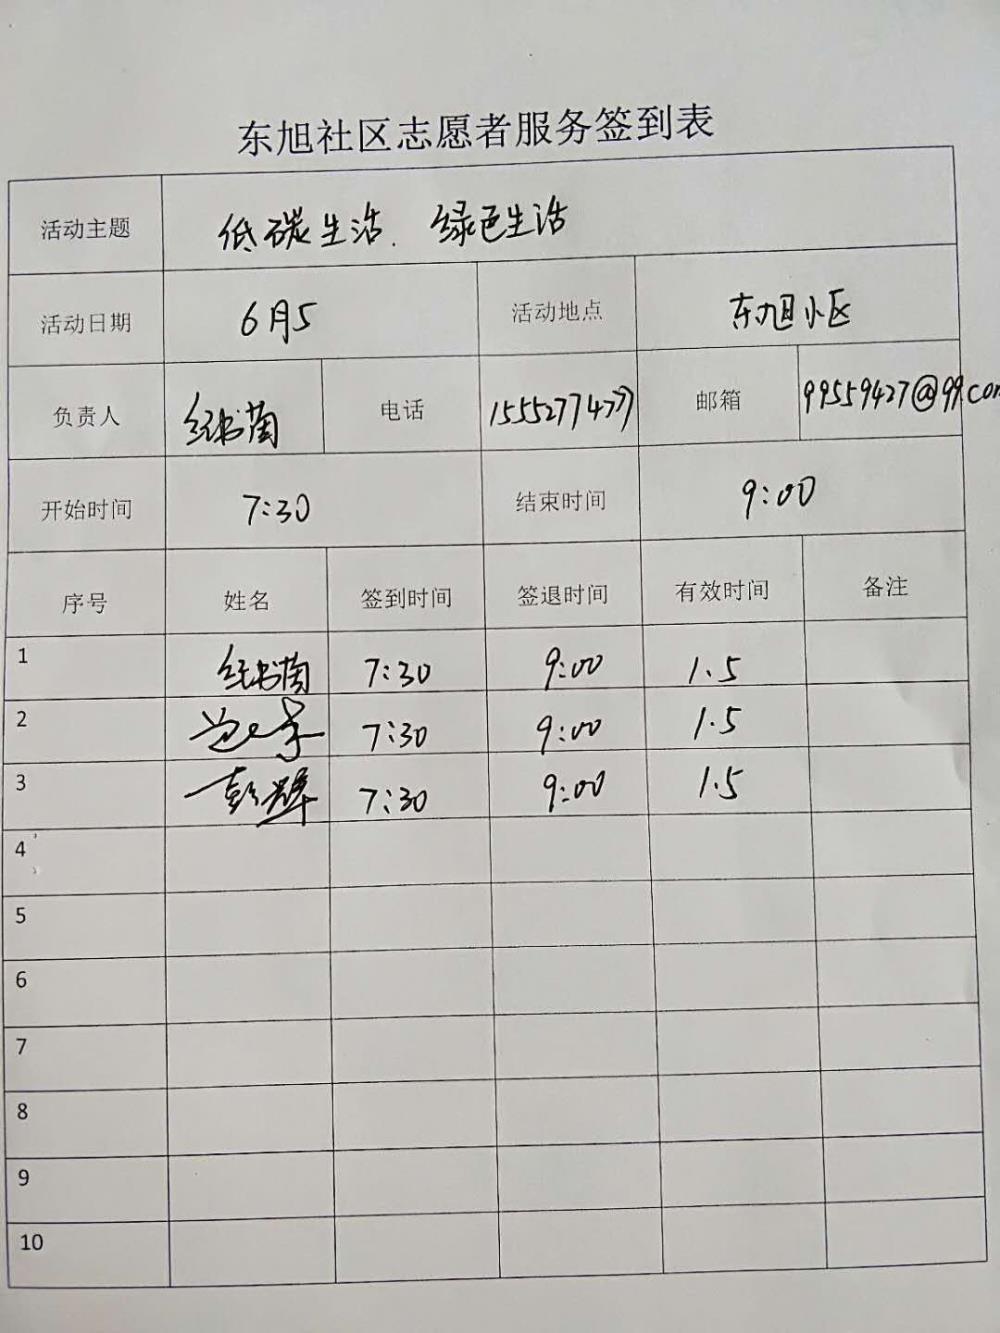 东旭社区志愿者服务签到表
活动主题 低碳生活. 绿色生活
活动日期 6月5 活动地点 东旭小区
负责人 电话 邮箱
开始时间 7:30 结束时间 9:00
序号 姓名 签到时间 签退时间 有效时间 备注
1 7:30 9:00 1.5
2 7:30 9:00 1.5
3 彭辉 7:30 9:00 1.5
4
5
6
7
8
9
10